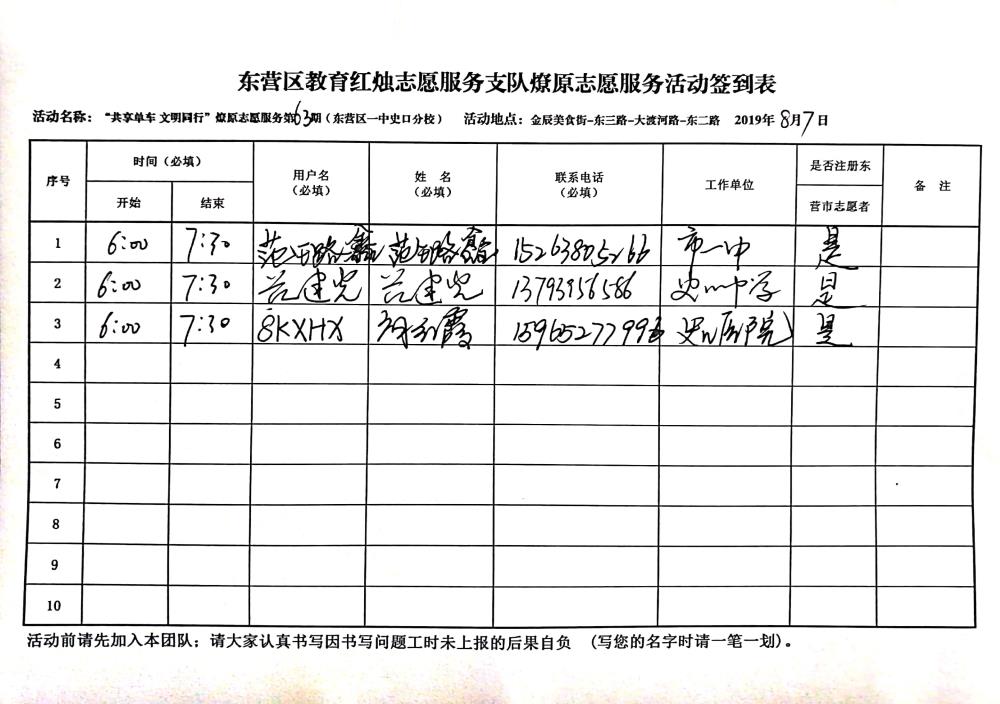 东营区教育红烛志愿服务支队燎原志愿服务活动签到表
活动名称：“共享单车 文明同行”燎原志愿服务第63期（东营区一中史口分校） 活动地点：金辰美食街-东三路-大渡河路-东二路 2019年8月7日
序号 时间（必填） 用户名（必填） 姓 名（必填） 联系电话（必填） 工作单位 是否注册东营市志愿者 备 注
开始 结束
1 6:00 7:30 范 路鑫 范 路鑫 15263805266 市一中 是
2 6:00 7:30 范建光 范建光 13793956586 史口中学 是
3 6:00 7:30 8KXHX 霞 1596527799 史口医院 是
4
5
6
7
8
9
10
活动前请先加入本团队；请大家认真书写因书写问题工时未上报的后果自负 （写您的名字时请一笔一划）。